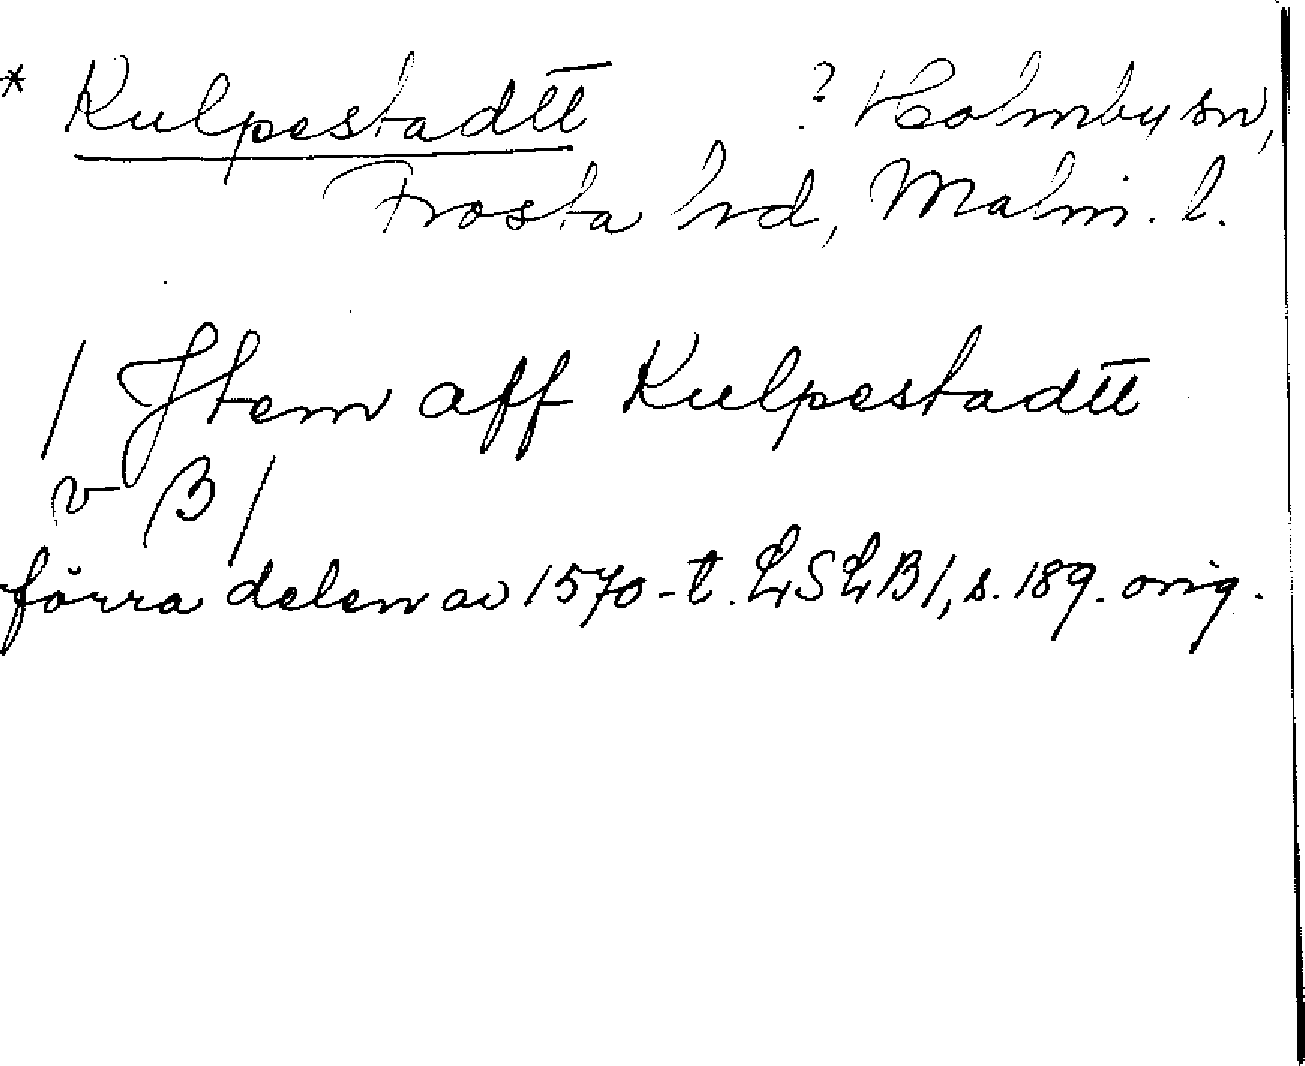 * Kulpestadtt ? Holmby sn,
Frosta hd, Malm. l.
/ Jtem aff Kulpestadtt
v β /
förra delen av 1570-t. LSLB1, s. 189. orig.